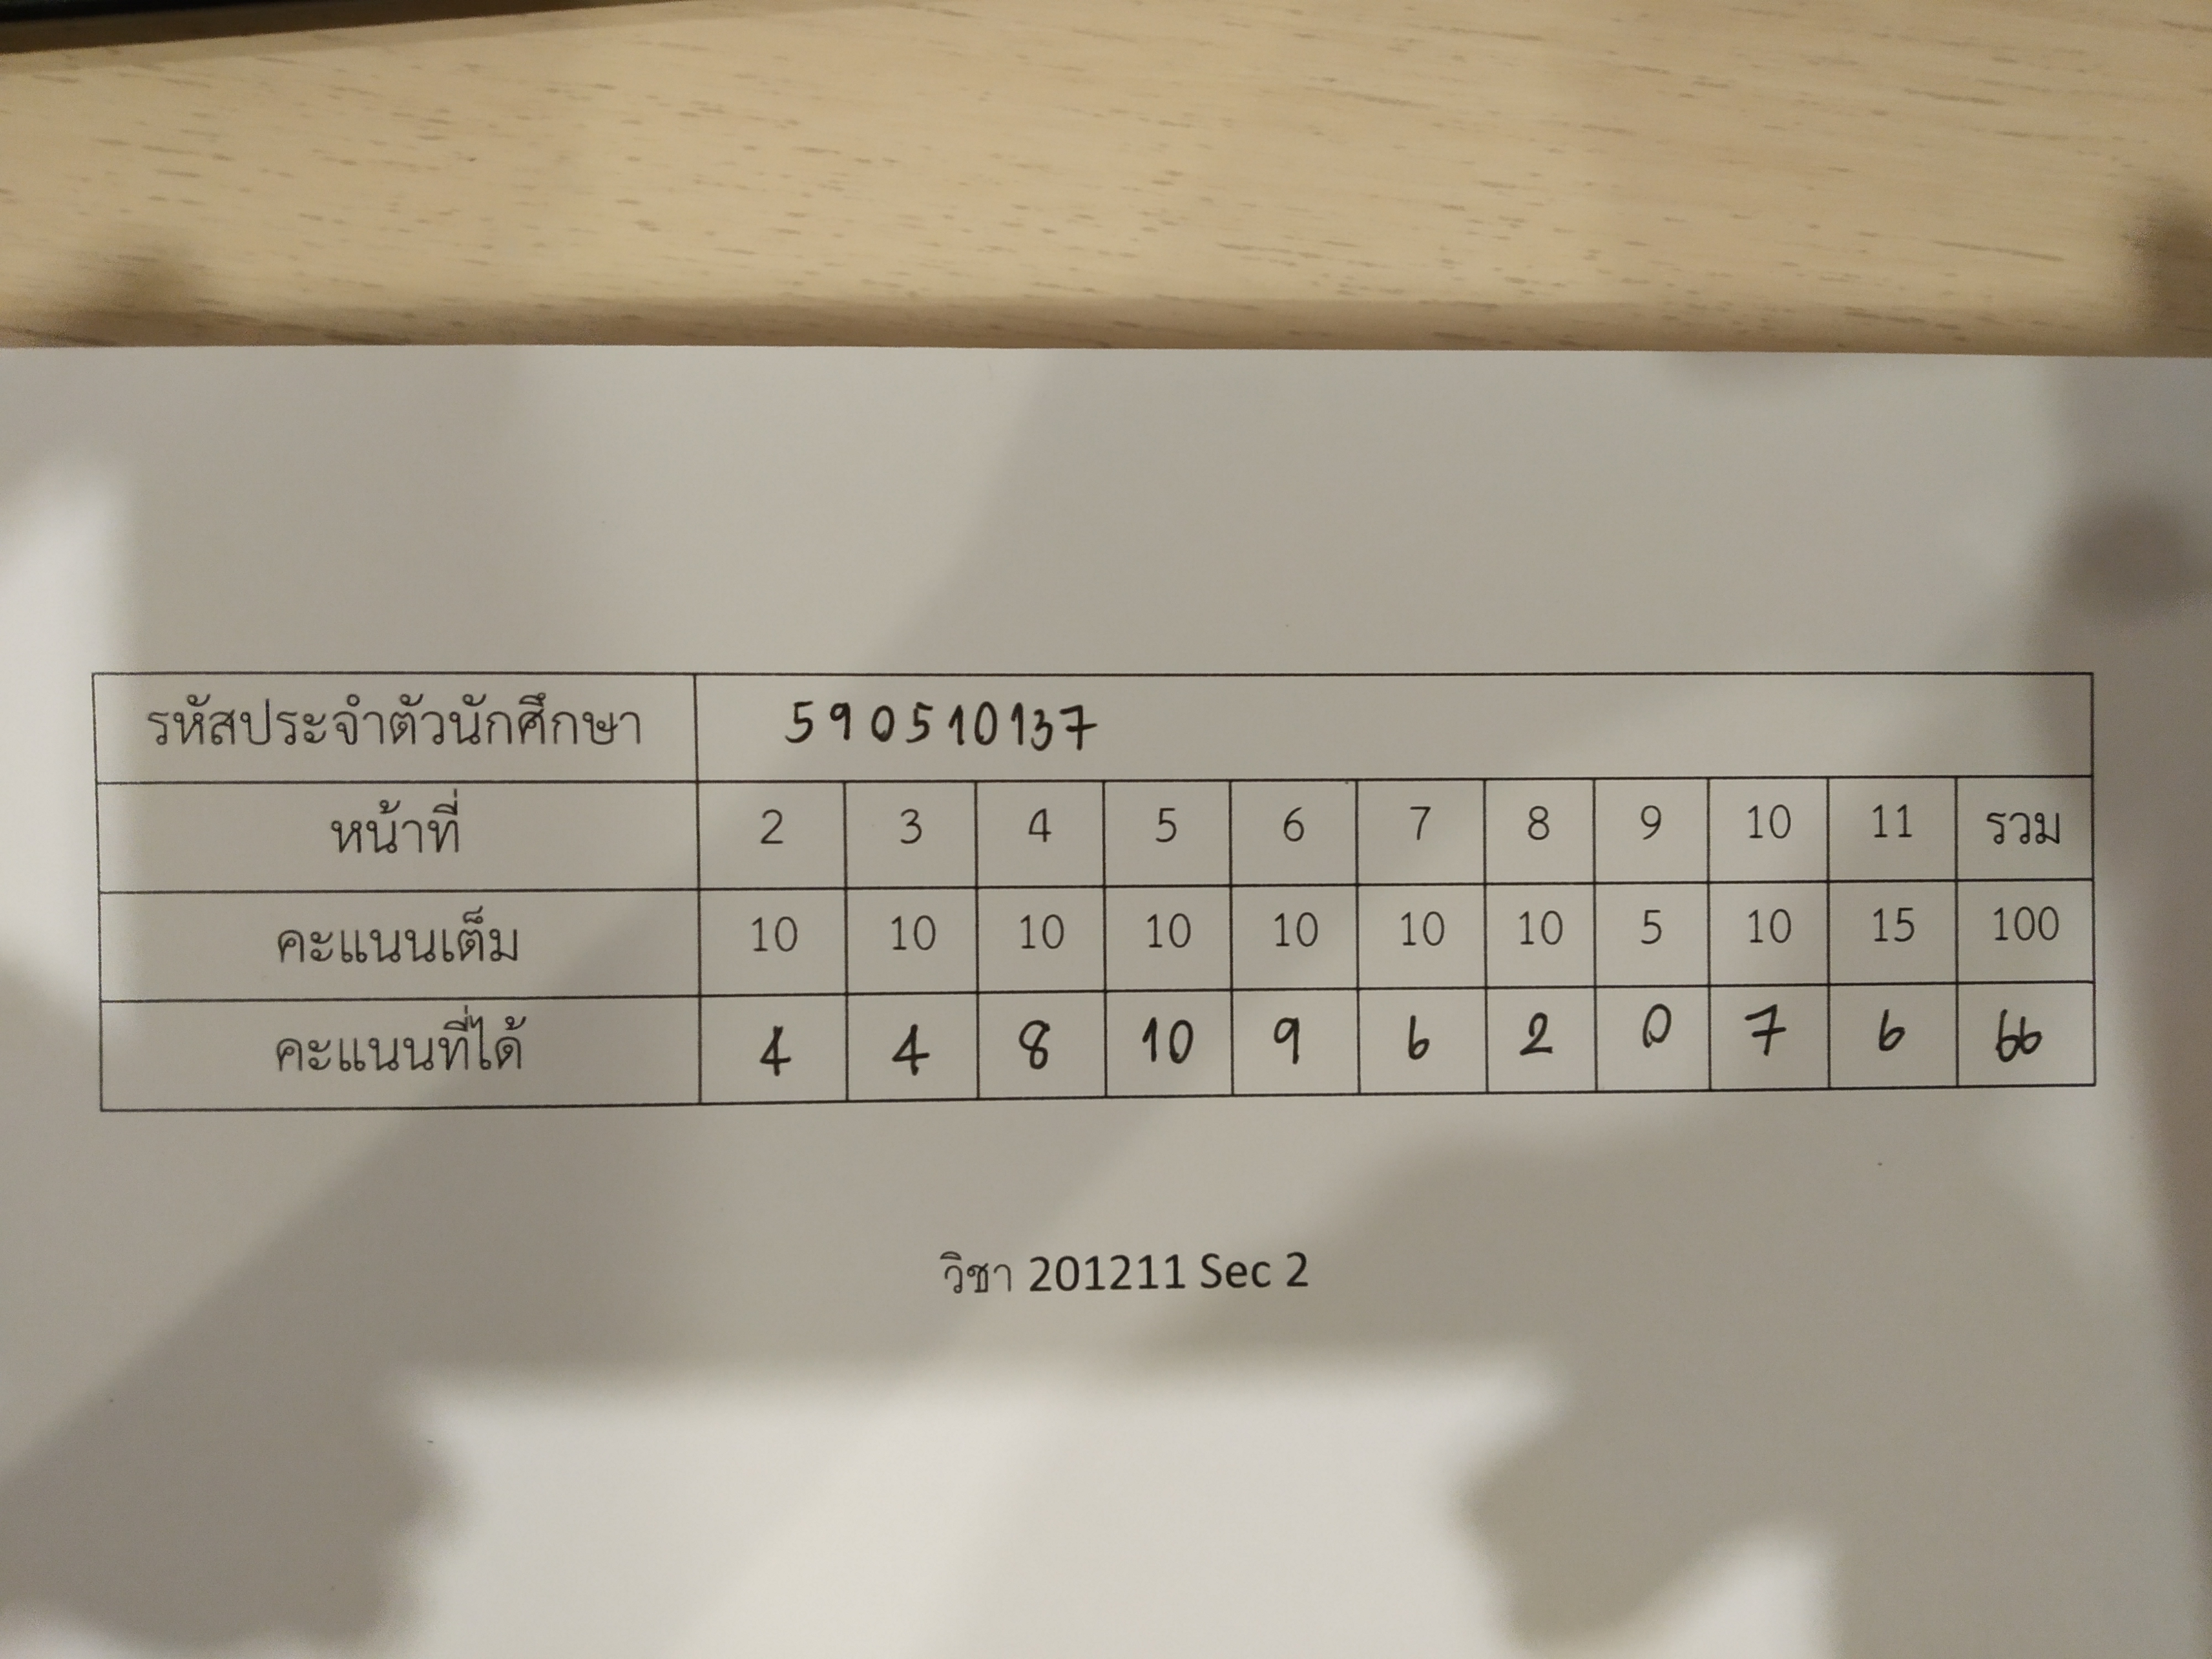 รหัสประจำตัวนักศึกษา 590510137
หน้าที่ 2 3 4 5 6 7 8 9 10 11 รวม
คะแนนเต็ม 10 10 10 10 10 10 10 5 10 15 100
คะแนนที่ได้ 4 4 8 10 9 6 2 0 7 6 66
วิชา 201211 Sec 2